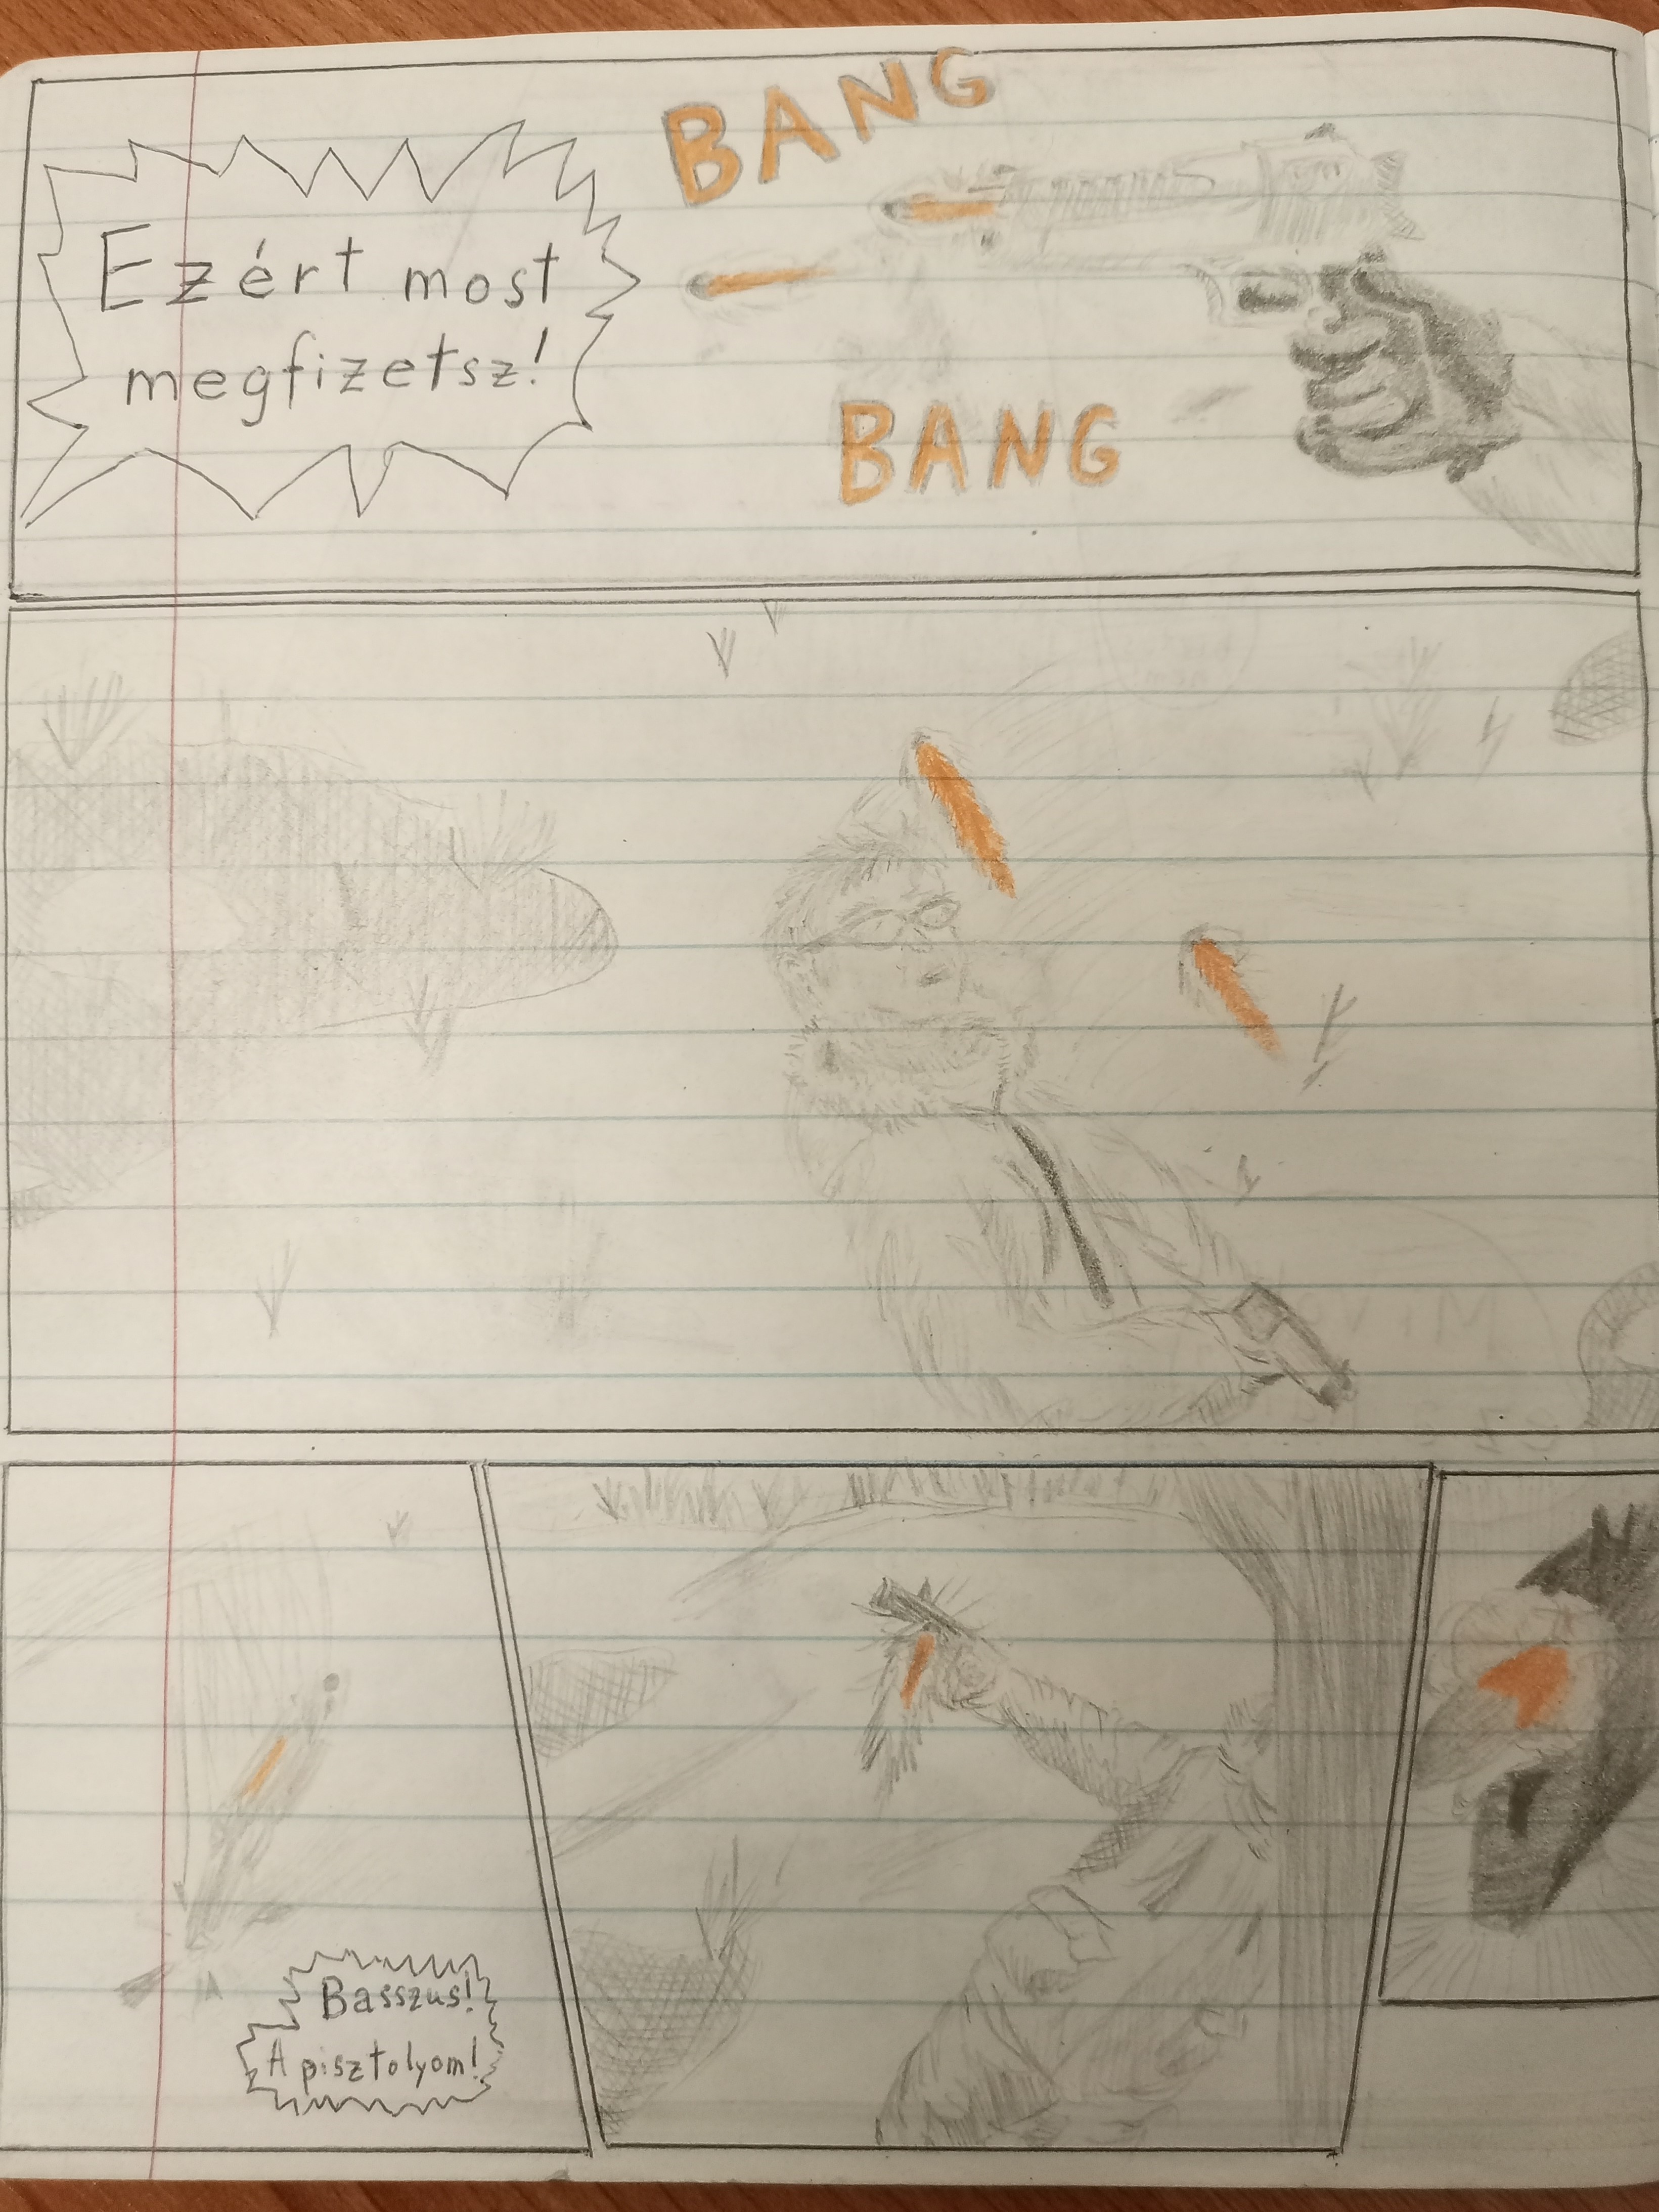 BANG
Ezért most
megfizetsz!
BANG
Basszus!
A pisztolyom!